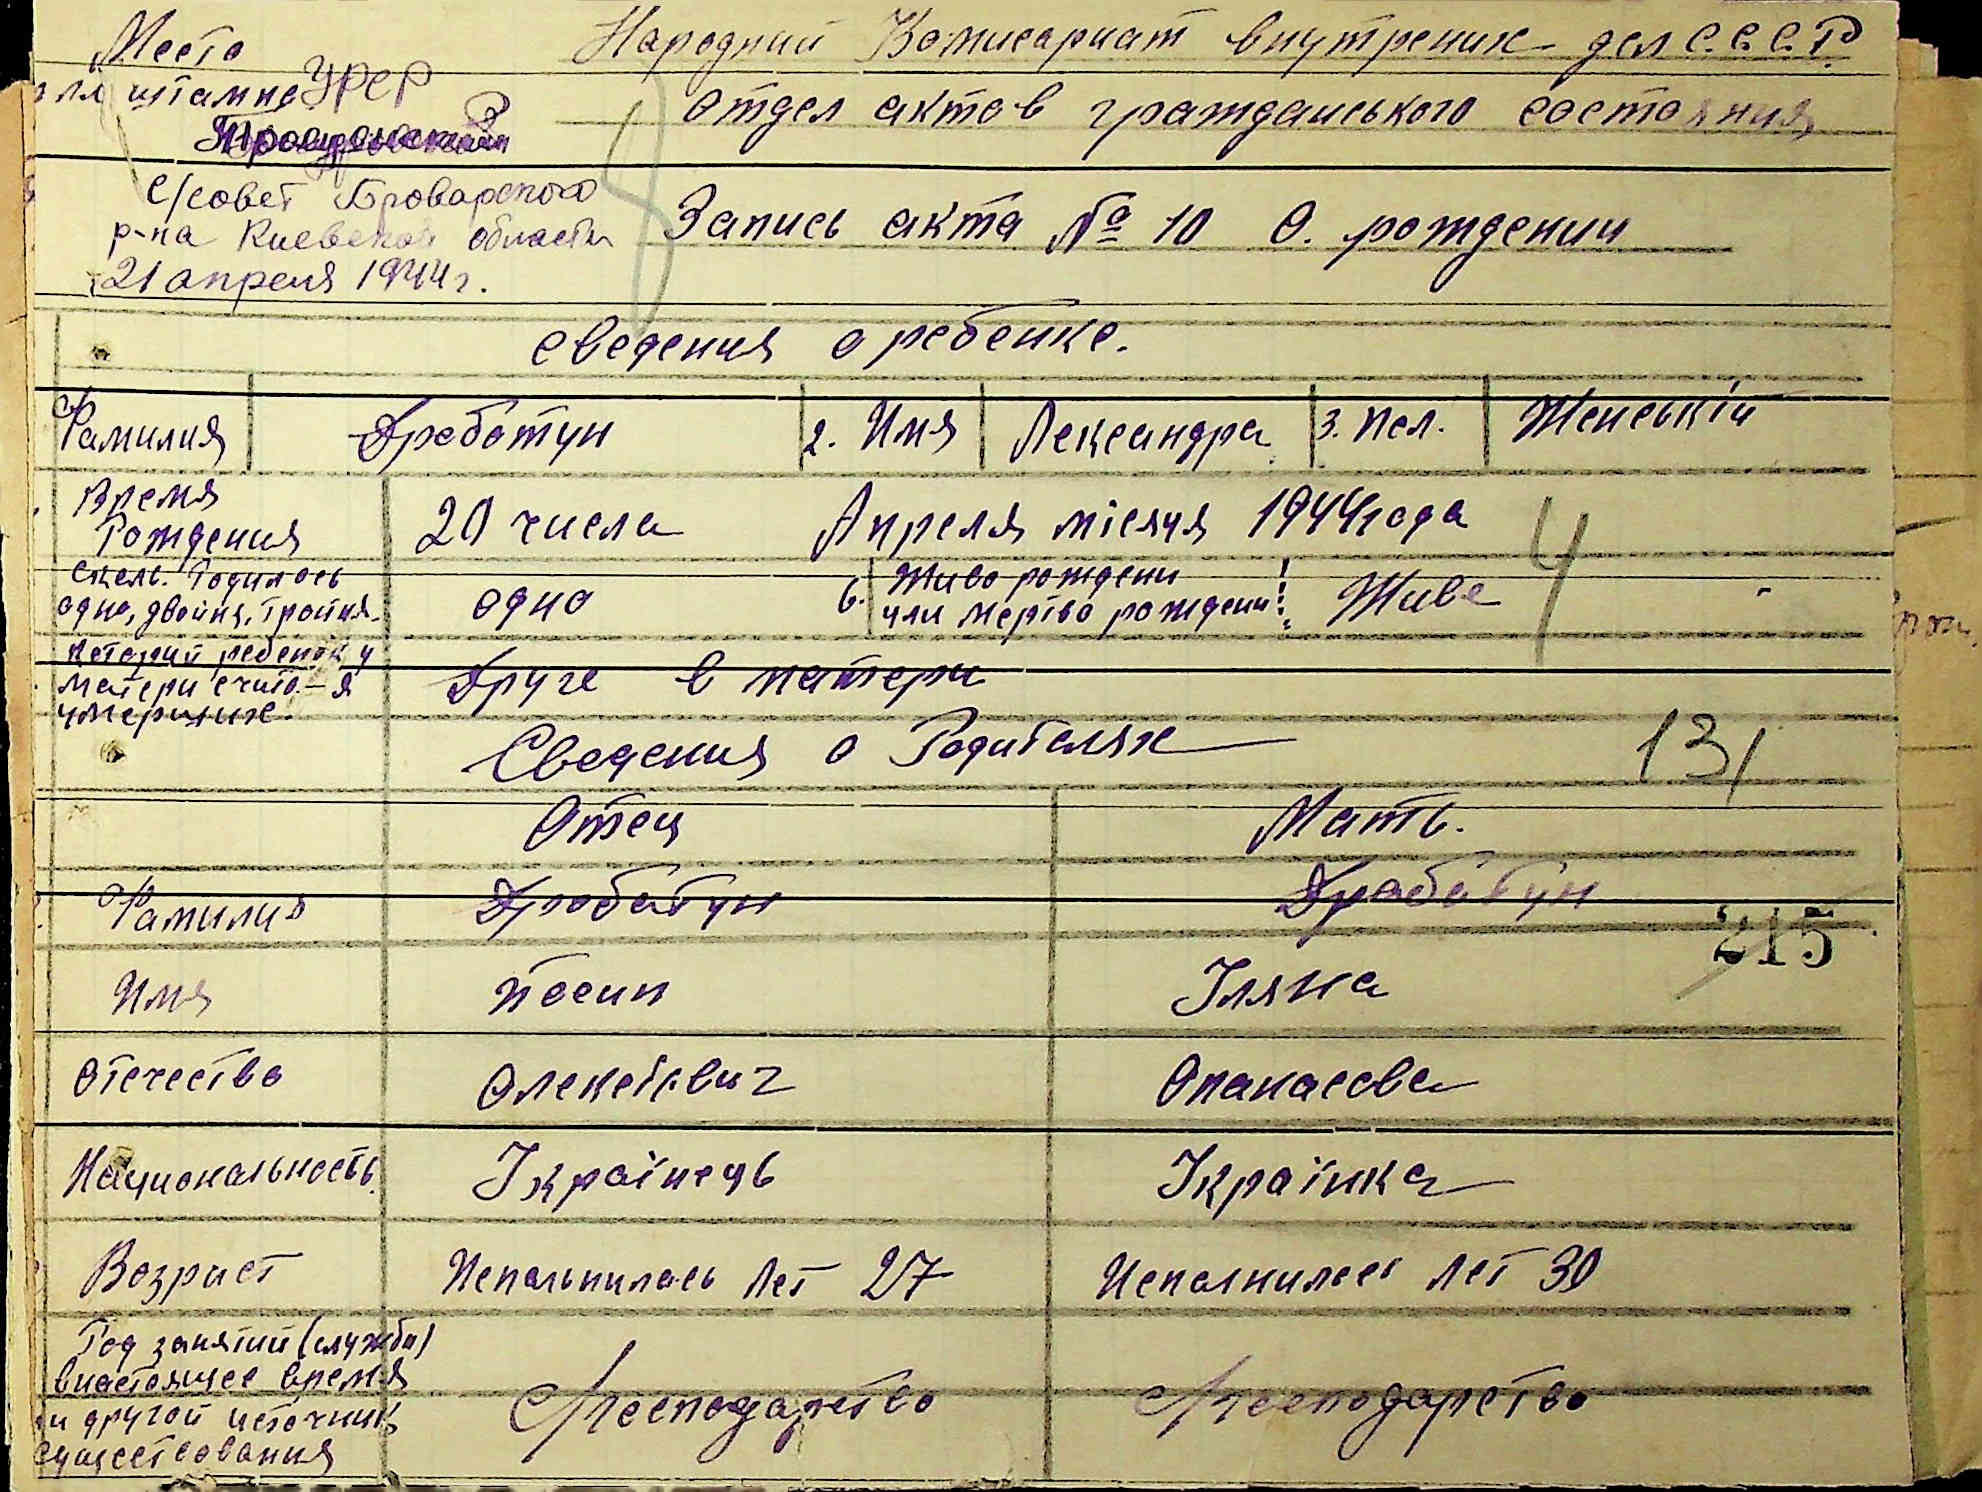 Место Народний Комисариат внутрених дел С.С.С.Р.
для штампа УРСР
отдел актов гражданського состояния
с/совет Броварского
р-на Киевской области
21 апреля 1944 г.
Запись акта № 10 О. рождении
Сведения о ребенке.
Фамилия Дроботун 2. Имя Лександра 3. Пол. Женський
Время Рождения 20 числа Апреля місяця 1944 года
Сколь. Родилось
одно, двойня, тройня. одно 6. Живо рождени
или мертво рождени Живе
4
Которий ребенок у
матери счита-я
умерших. Друге в матери
Сведения о Родителях
131
Отец Мать.
Фамилия Дроботун Дроботун
215
Имя Йосип Іляна
Отечество Олексієвич Опанасовна
Национальность. Українець Українка
Возраст Испольнилось лет 27 Исполнилось лет 30
Род занятий (служби)
в настоящее время
и другой источник
существования